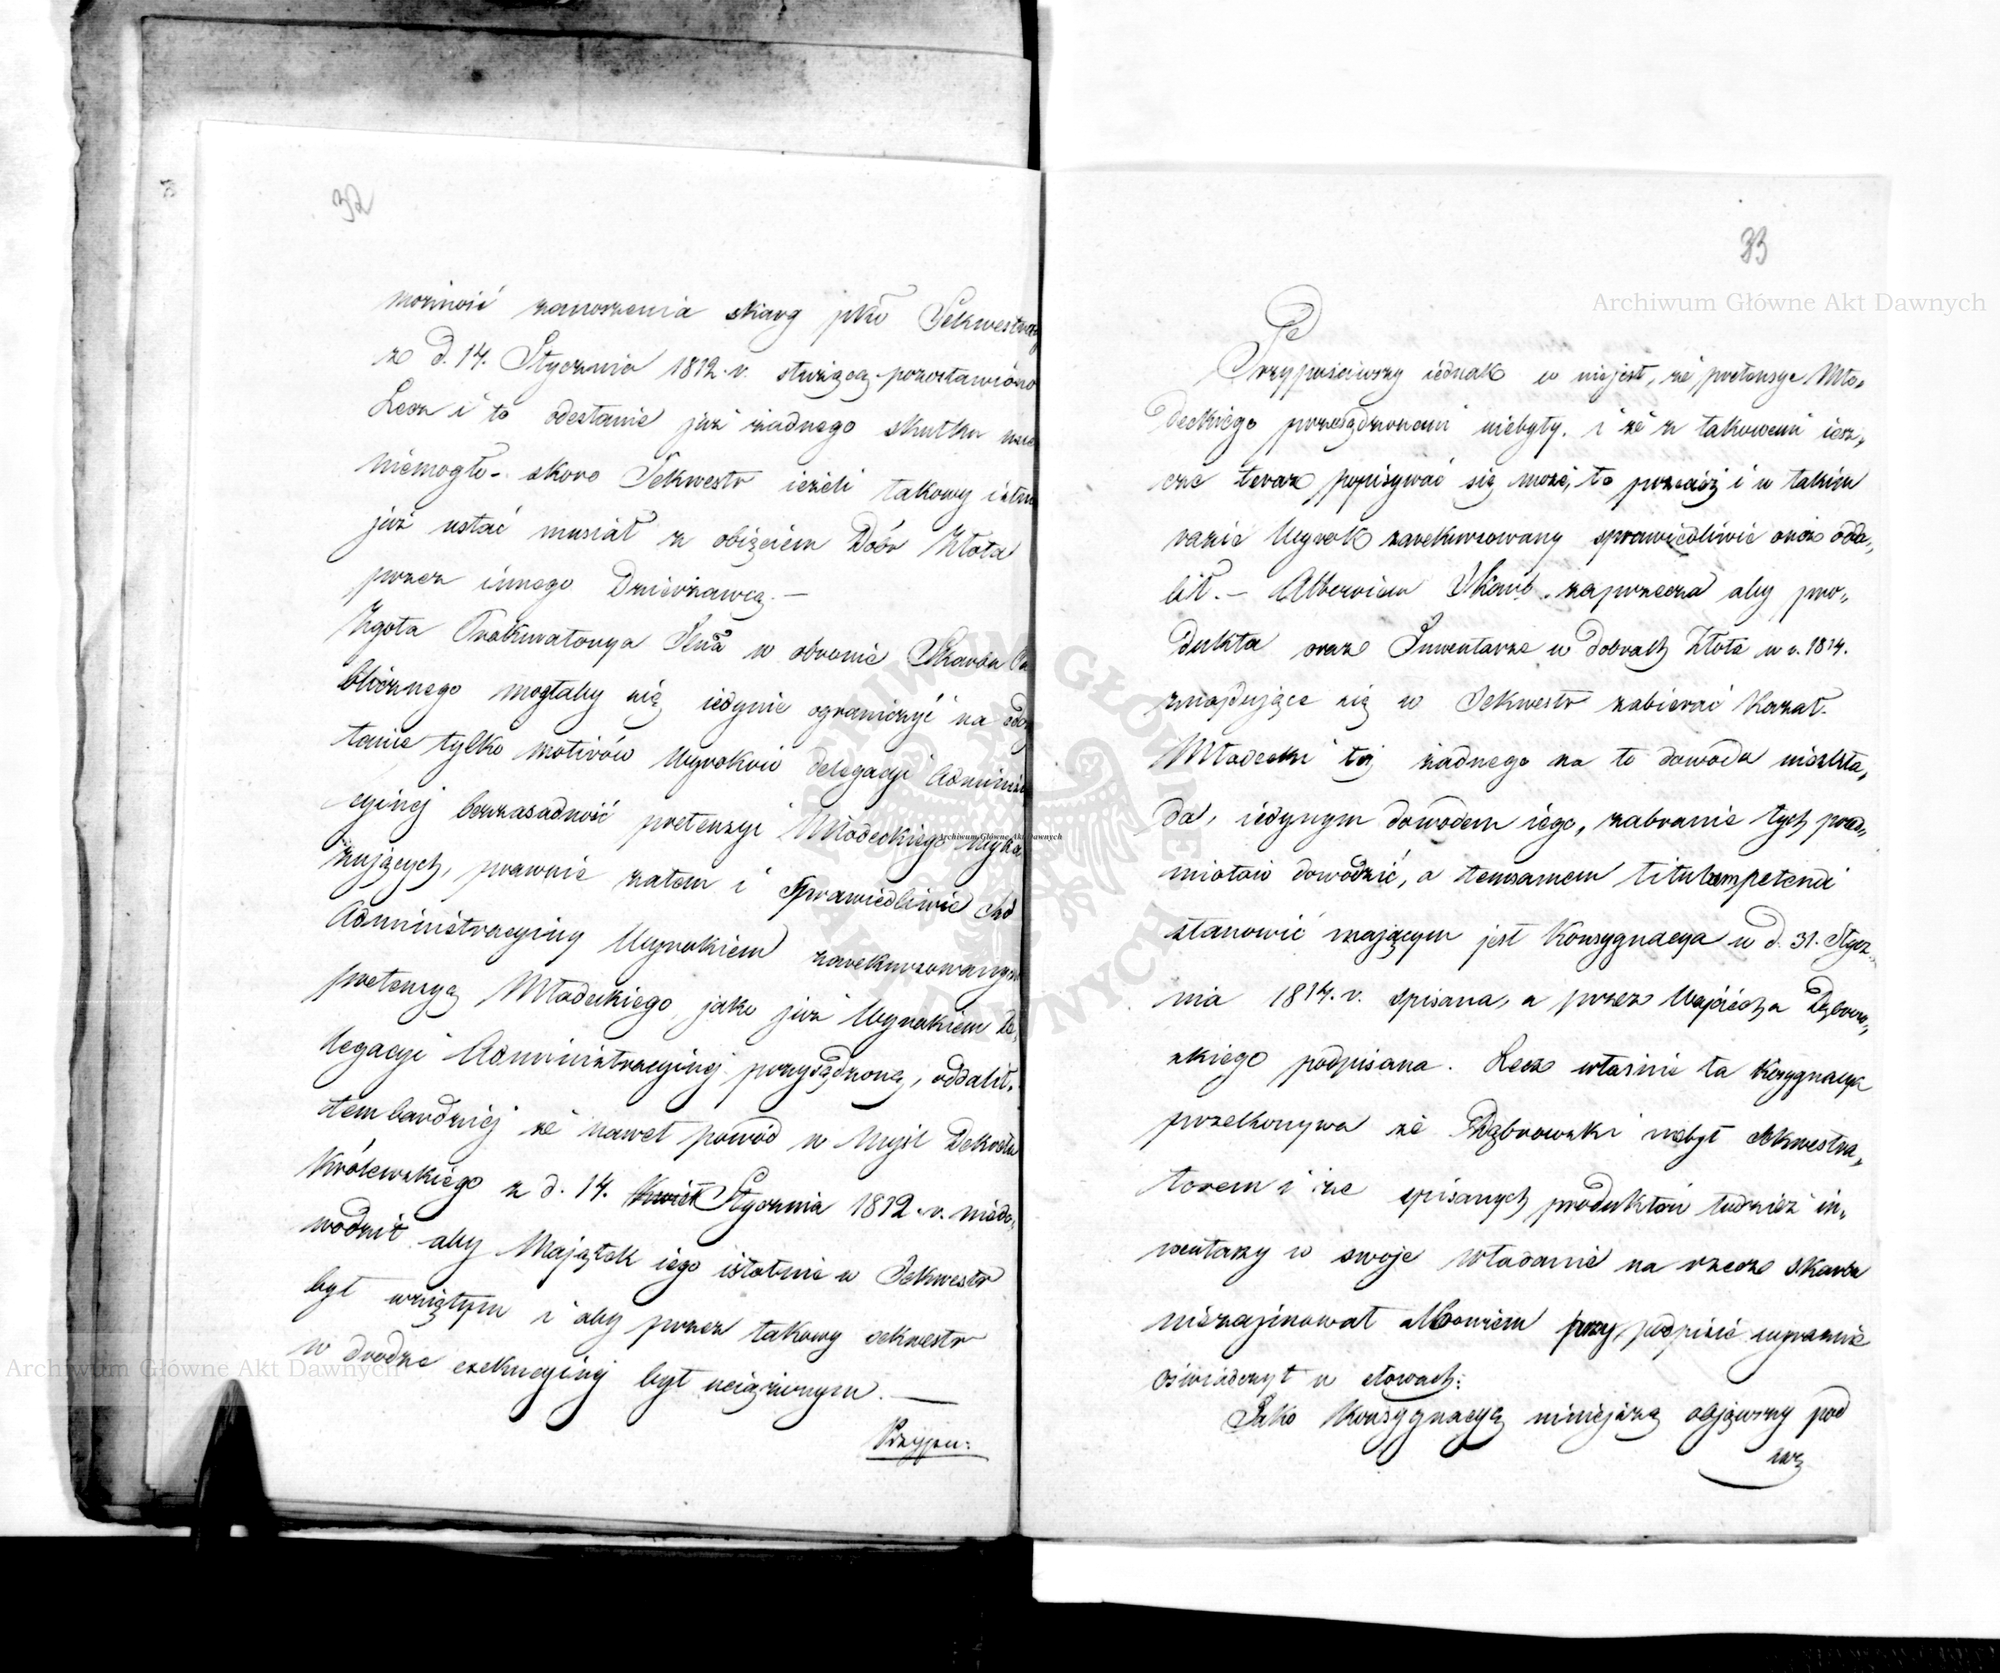 32
możność zanoszenia skarg pko Sekwestracyi
z d. 14. Stycznia 1812. r. służącą pozostawiono
Lecz i to odesłanie już żadnego skutku
niemogło - skoro Sekwestr ieżeli takowy istn
już ustać musiał z obięciem Dóbr Złota
przez innego Dzierżawcę. —
Zgoła Prokuratorya w obronie Skarbu Pu
blicznego mogłaby się iedynie ograniczyć na odczy
tanie tylko motivów Wyroków delegacyi Adminis
cyinej bezzasadność pretensyi Młodeckiego wyka
zujących, prawnie zatem i sprawiedliwie Sąd
Administracyiny Wyrokiem zarekursowanym
pretensyą Młodeckiego jako już Wyrokiem De
legacyi Administracyinej przysądzoną, oddalił.
tembardziej że nawet powód w myśl Dekretu
Królewskiego z d. 14. Kwiet Stycznia 1812. r. niedo,
wodnił aby Majątek iego istotnie w Sekwestr
był wziętym i aby przez takowy sekwestr
w drodze exekucyinej był uciążonym. —
Przypu:
33
Przypuściwszy iednak co niejest, że pretensye Mło,
deckiego przesądzonemi niebyły. i że z takowemi iesz,
cze teraz popisywać się może, to przecież i w takim
razie Wyrok zarekursowany sprawiedliwie onże odda,
lił. — Albowiem Skarb zaprzecza aby pro,
dukta oraz Inwentarze w dobrach Złota w r. 1814.
znajdujące się w Sekwestr zabierać kazał.
Młodecki też żadnego na to dowodu nieskła,
da, iedynym dowodem iego, zabranie tych przed,
miotów dowodzić, a temsamem titulum petendi
stanowić mającym jest Konsygnacya w d. 31. Stycz
nia 1814. r. spisana, a przez Wojciecha Dąbrow,
skiego podpisana. Lecz właśnie ta Konsygnacya
przekonywa że Dąbrowski niebył Sekwestra,
torem i że spisanych produktów tudzież in,
wentarzy w swoje władanie na rzecz skarbu
niezajmował albowiem przy podpisie wyraznie
oświadczył w słowach:
Jako Konsygnacyą niniejszą objąwszy pod
Archiwum Główne Akt Dawnych
Archiwum Główne Akt Dawnych
Archiwum Główne Akt Dawnych